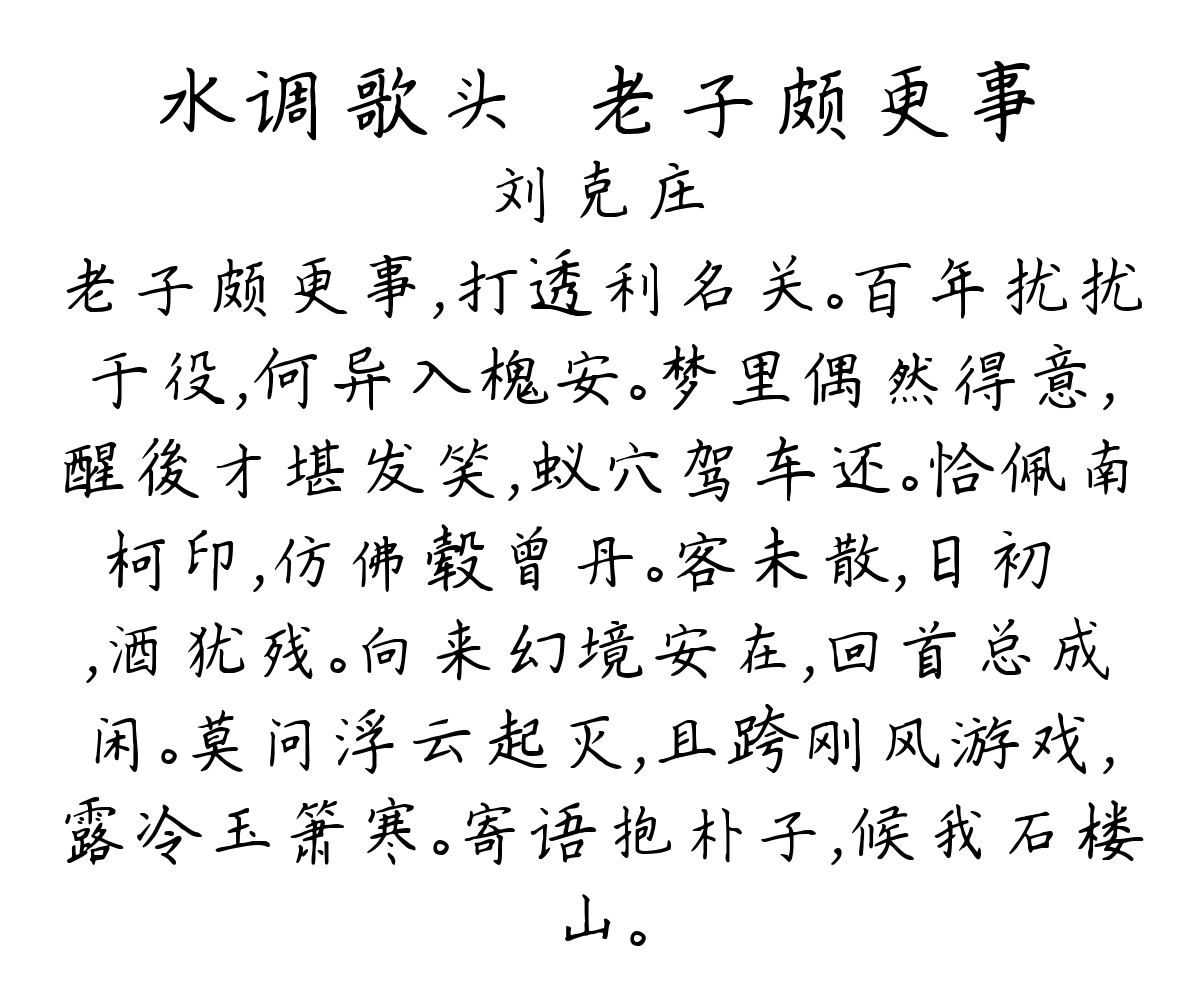 水调歌头 老子颇更事
刘克庄
老子颇更事,打透利名关。百年扰扰
于役,何异入槐安。梦里偶然得意,
醒後才堪发笑,蚁穴驾车还。恰佩南
柯印,仿佛彀曾丹。客未散,日初
,酒犹残。向来幻境安在,回首总成
闲。莫问浮云起灭,且跨刚风游戏,
露冷玉箫寒。寄语抱朴子,候我石楼
山。